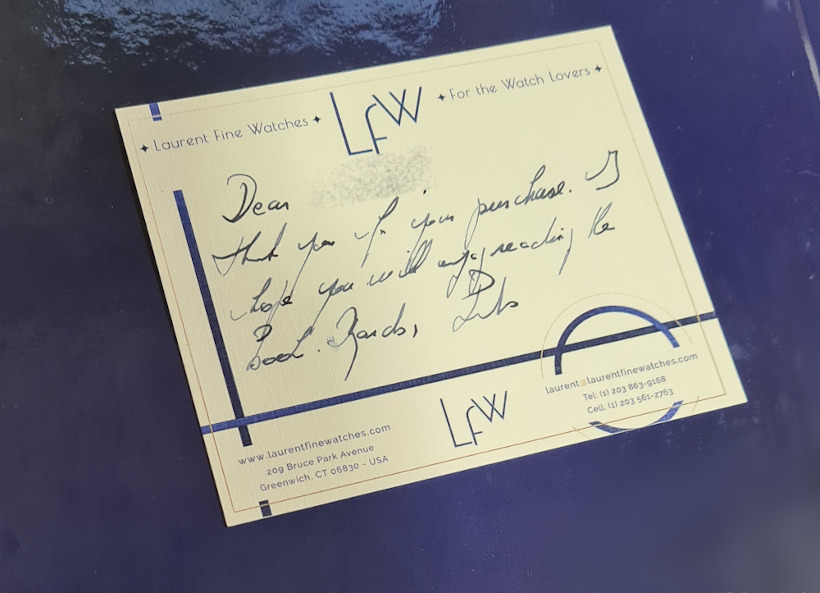 ✦ Laurent Fine Watches ✦ LFW ✦ For the Watch Lovers ✦
Dear
thank you for your purchase. I
hope you will enjoy reading the
Book. Regards,
www.laurentfinewatches.com
209 Bruce Park Avenue
Greenwich, CT 06830 - USA
LFW
laurent@laurentfinewatches.com
Tel: (1) 203 863-9168
Cell: (1) 203 561-2763